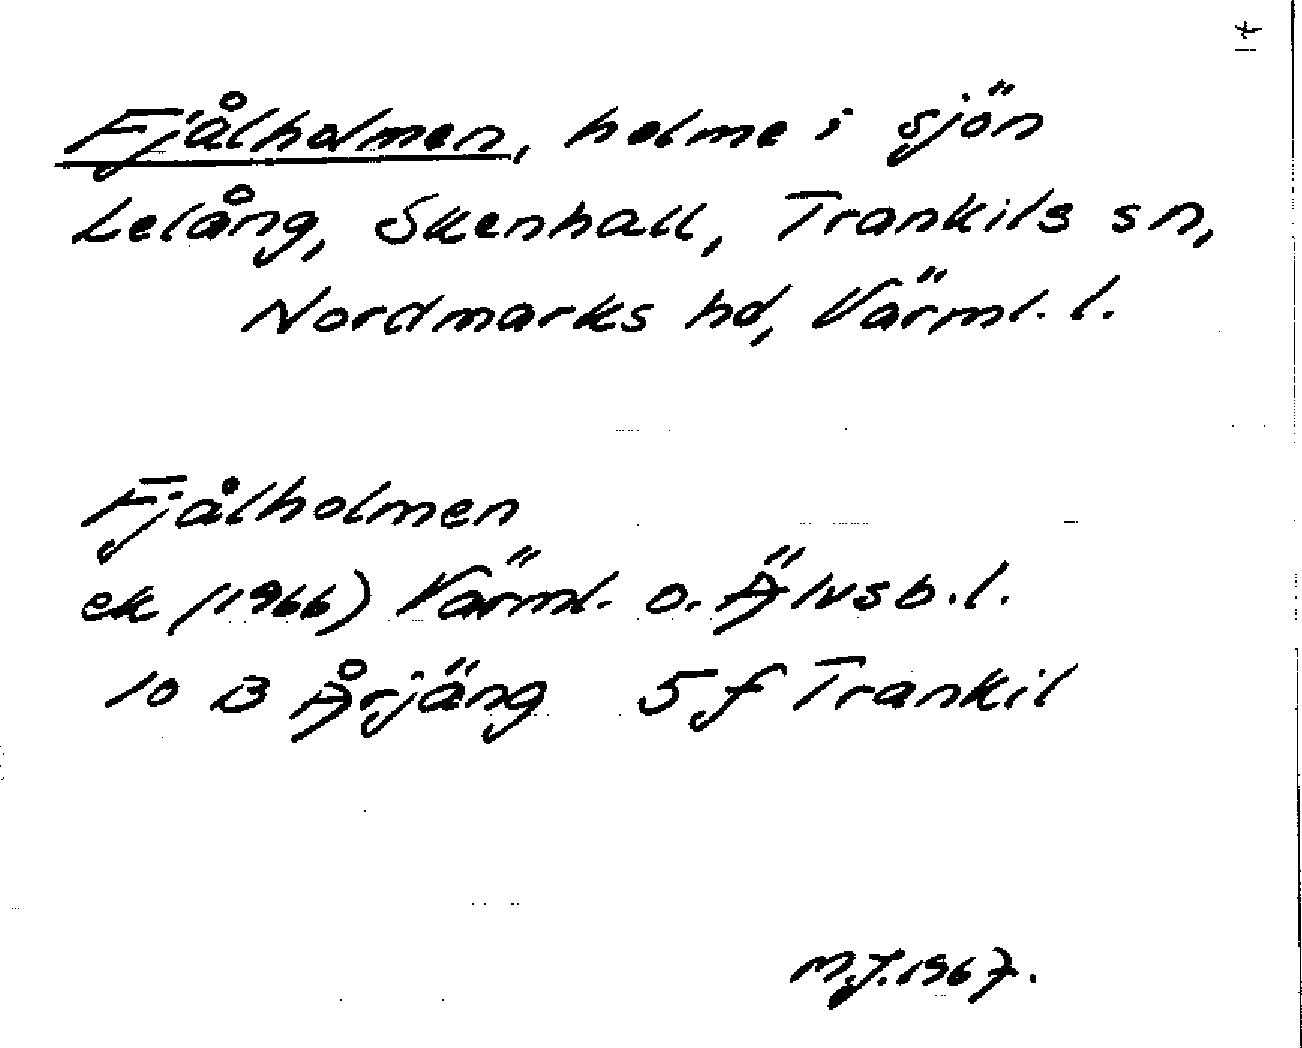 Fjålholmen, holme i sjön
Lelång, Skenhall, Trankils sn,
Nordmarks hd, Värml. l.
Fjålholmen
ek (1966) Värml. o. Älvsb. l.
10 B Årjäng 5 f Trankil
M.J. 1967.